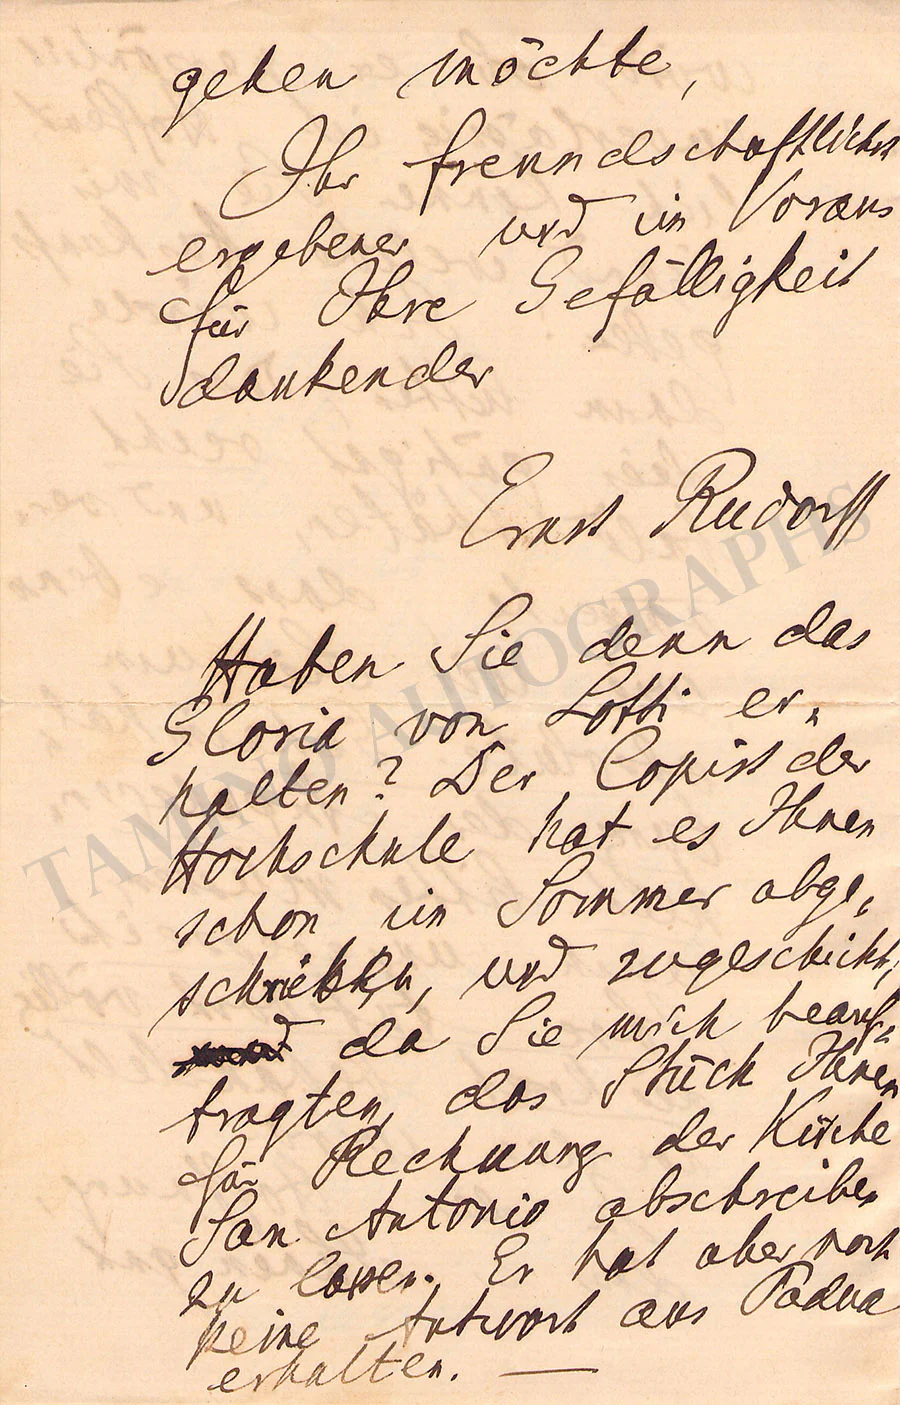 gehen möchte,
Ihr freundschaftlichst
ergebener und im Voraus
für Ihre Gefälligkeit
dankender
Ernst Rudorff
Haben Sie denn das
Gloria von Lotti er-
halten? Der Copist der
Hochschule hat es Ihnen
schon im Sommer abge-
schrieben, und zugeschickt,
da Sie mich beauf-
tragten, das Stück Ihnen
für Rechnung der Kirche
San Antonio abschreiben
zu lassen. Er hat aber noch
keine Antwort aus Padua
erhalten. —
TAMINO AUTOGRAPHS